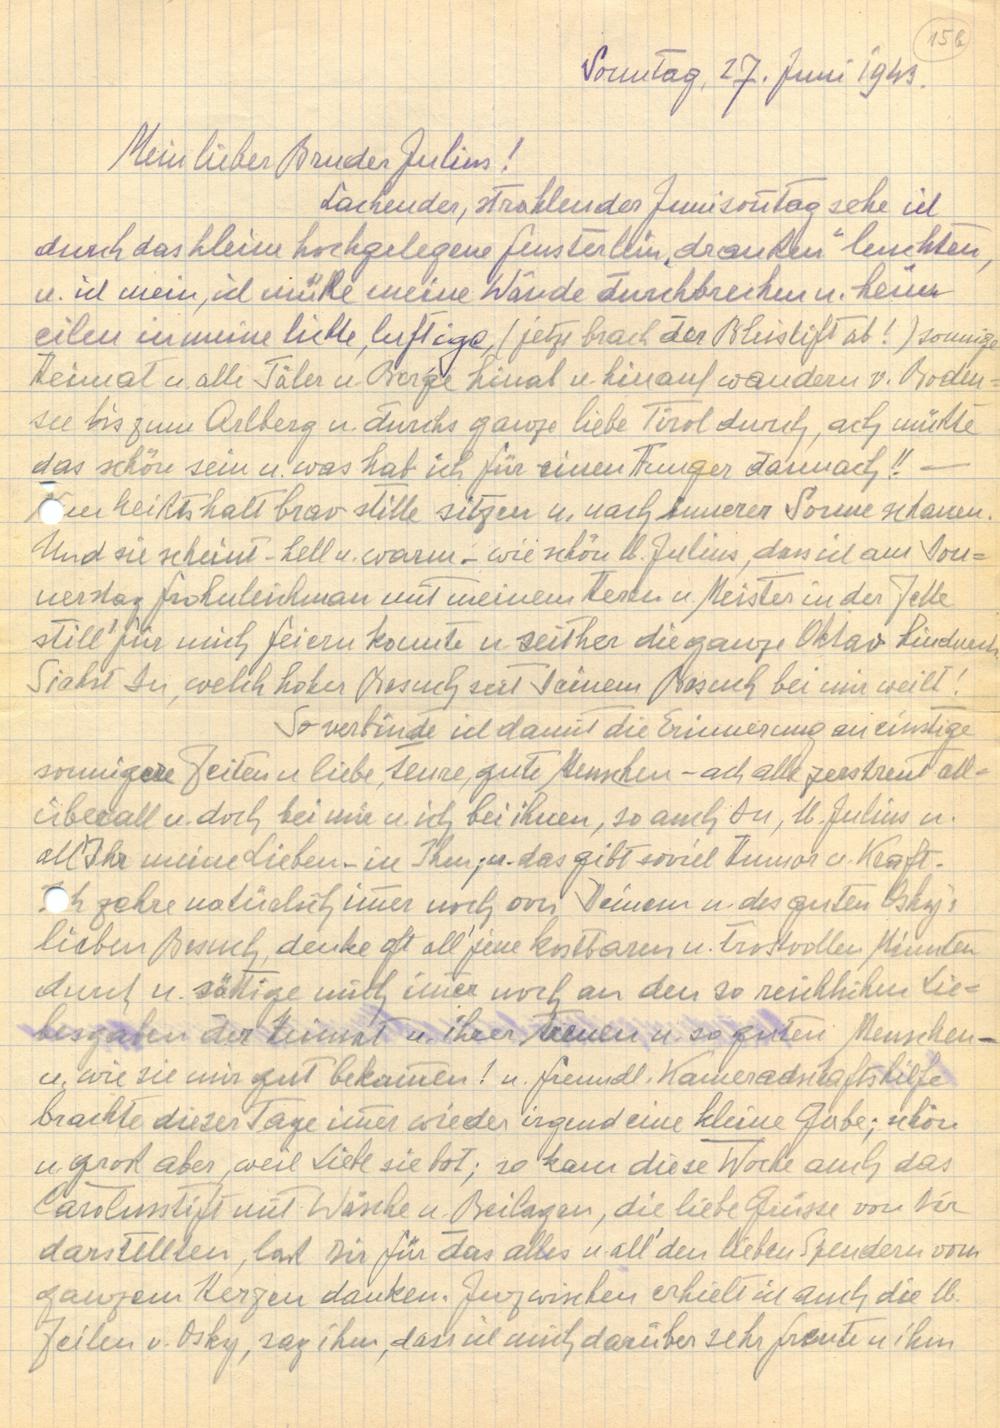 15b
Sonntag, 27. Juni 1943.
Mein lieber Bruder Julius!
Lachender, strahlender Junisonntag sehe ich
durch das kleine hochgelegene Fensterlein „draußen“ leuchten,
u. ich mein, ich müßte meine Wände durchbrechen u. heim
eilen in meine lichte, luftige, (jetzt brach der Bleistift ab!) sonnige
Heimat u. alle Täler u. Berge hinab u. hinauf wandern v. Boden=
see bis zum Arlberg u. durchs ganze liebe Tirol durch, ach müßte
das schön sein u. was hab ich für einen Hunger darnach!! —
Nun heißts halt brav stille sitzen u. nach innerer Sonne schauen.
Und sie scheint - hell u. warm - wie schön lb. Julius, dass ich am Don=
nerstag Frohnleichnam mit meinem Herrn u Meister in der Zelle
still für mich feiern konnte u seither die ganze Oktav hindurch
Siehst Du, welch hoher Besuch seit Deinem Besuch bei mir weilt!
So verbinde ich damit die Erinnerung an einstige
sonnigere Zeiten u liebe, teure, gute Menschen - ach alle zerstreut all=
überall u. doch bei mir u. ich bei ihnen, so auch Du, lb. Julius u.
all Ihr meine Lieben - in Ihm; u. das gibt soviel Humor u. Kraft.
Ich zehre natürlich im̅er noch von Deinem u. des guten Osky's
lieben Besuch, denke oft all' jene kostbaren u. trostvollen Minuten
durch u. sättige mich im̅er noch an den so reichlichen Lie=
besgaben der Heimat u. ihrer treuen u. so guten Menschen -
u. wie sie mir gut bekamen! u. freundl. Kameradschaftshilfe
brachte dieser Tage im̅er wieder irgend eine kleine Gabe; schön
u groß aber, weil Liebe sie bot; so kam diese Woche auch das
Carolusstift mit Wäsche u. Beilagen, die liebe Grüsse von Dir
darstellten, laß Dir für das alles u all' den lieben Spendern vom
ganzem Herzen danken. Inzwischen erhielt ich auch die lb.
Zeilen v. Osky, sag ihm, dass ich mich darüber sehr freute u ihm